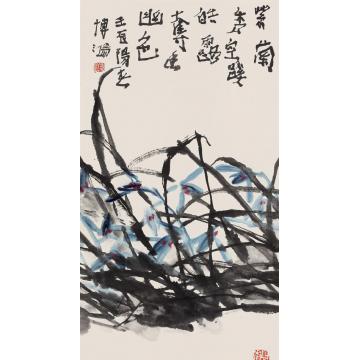 紫蘭
秀空蹊
皓露
奪
幽色
壬辰陽春
博